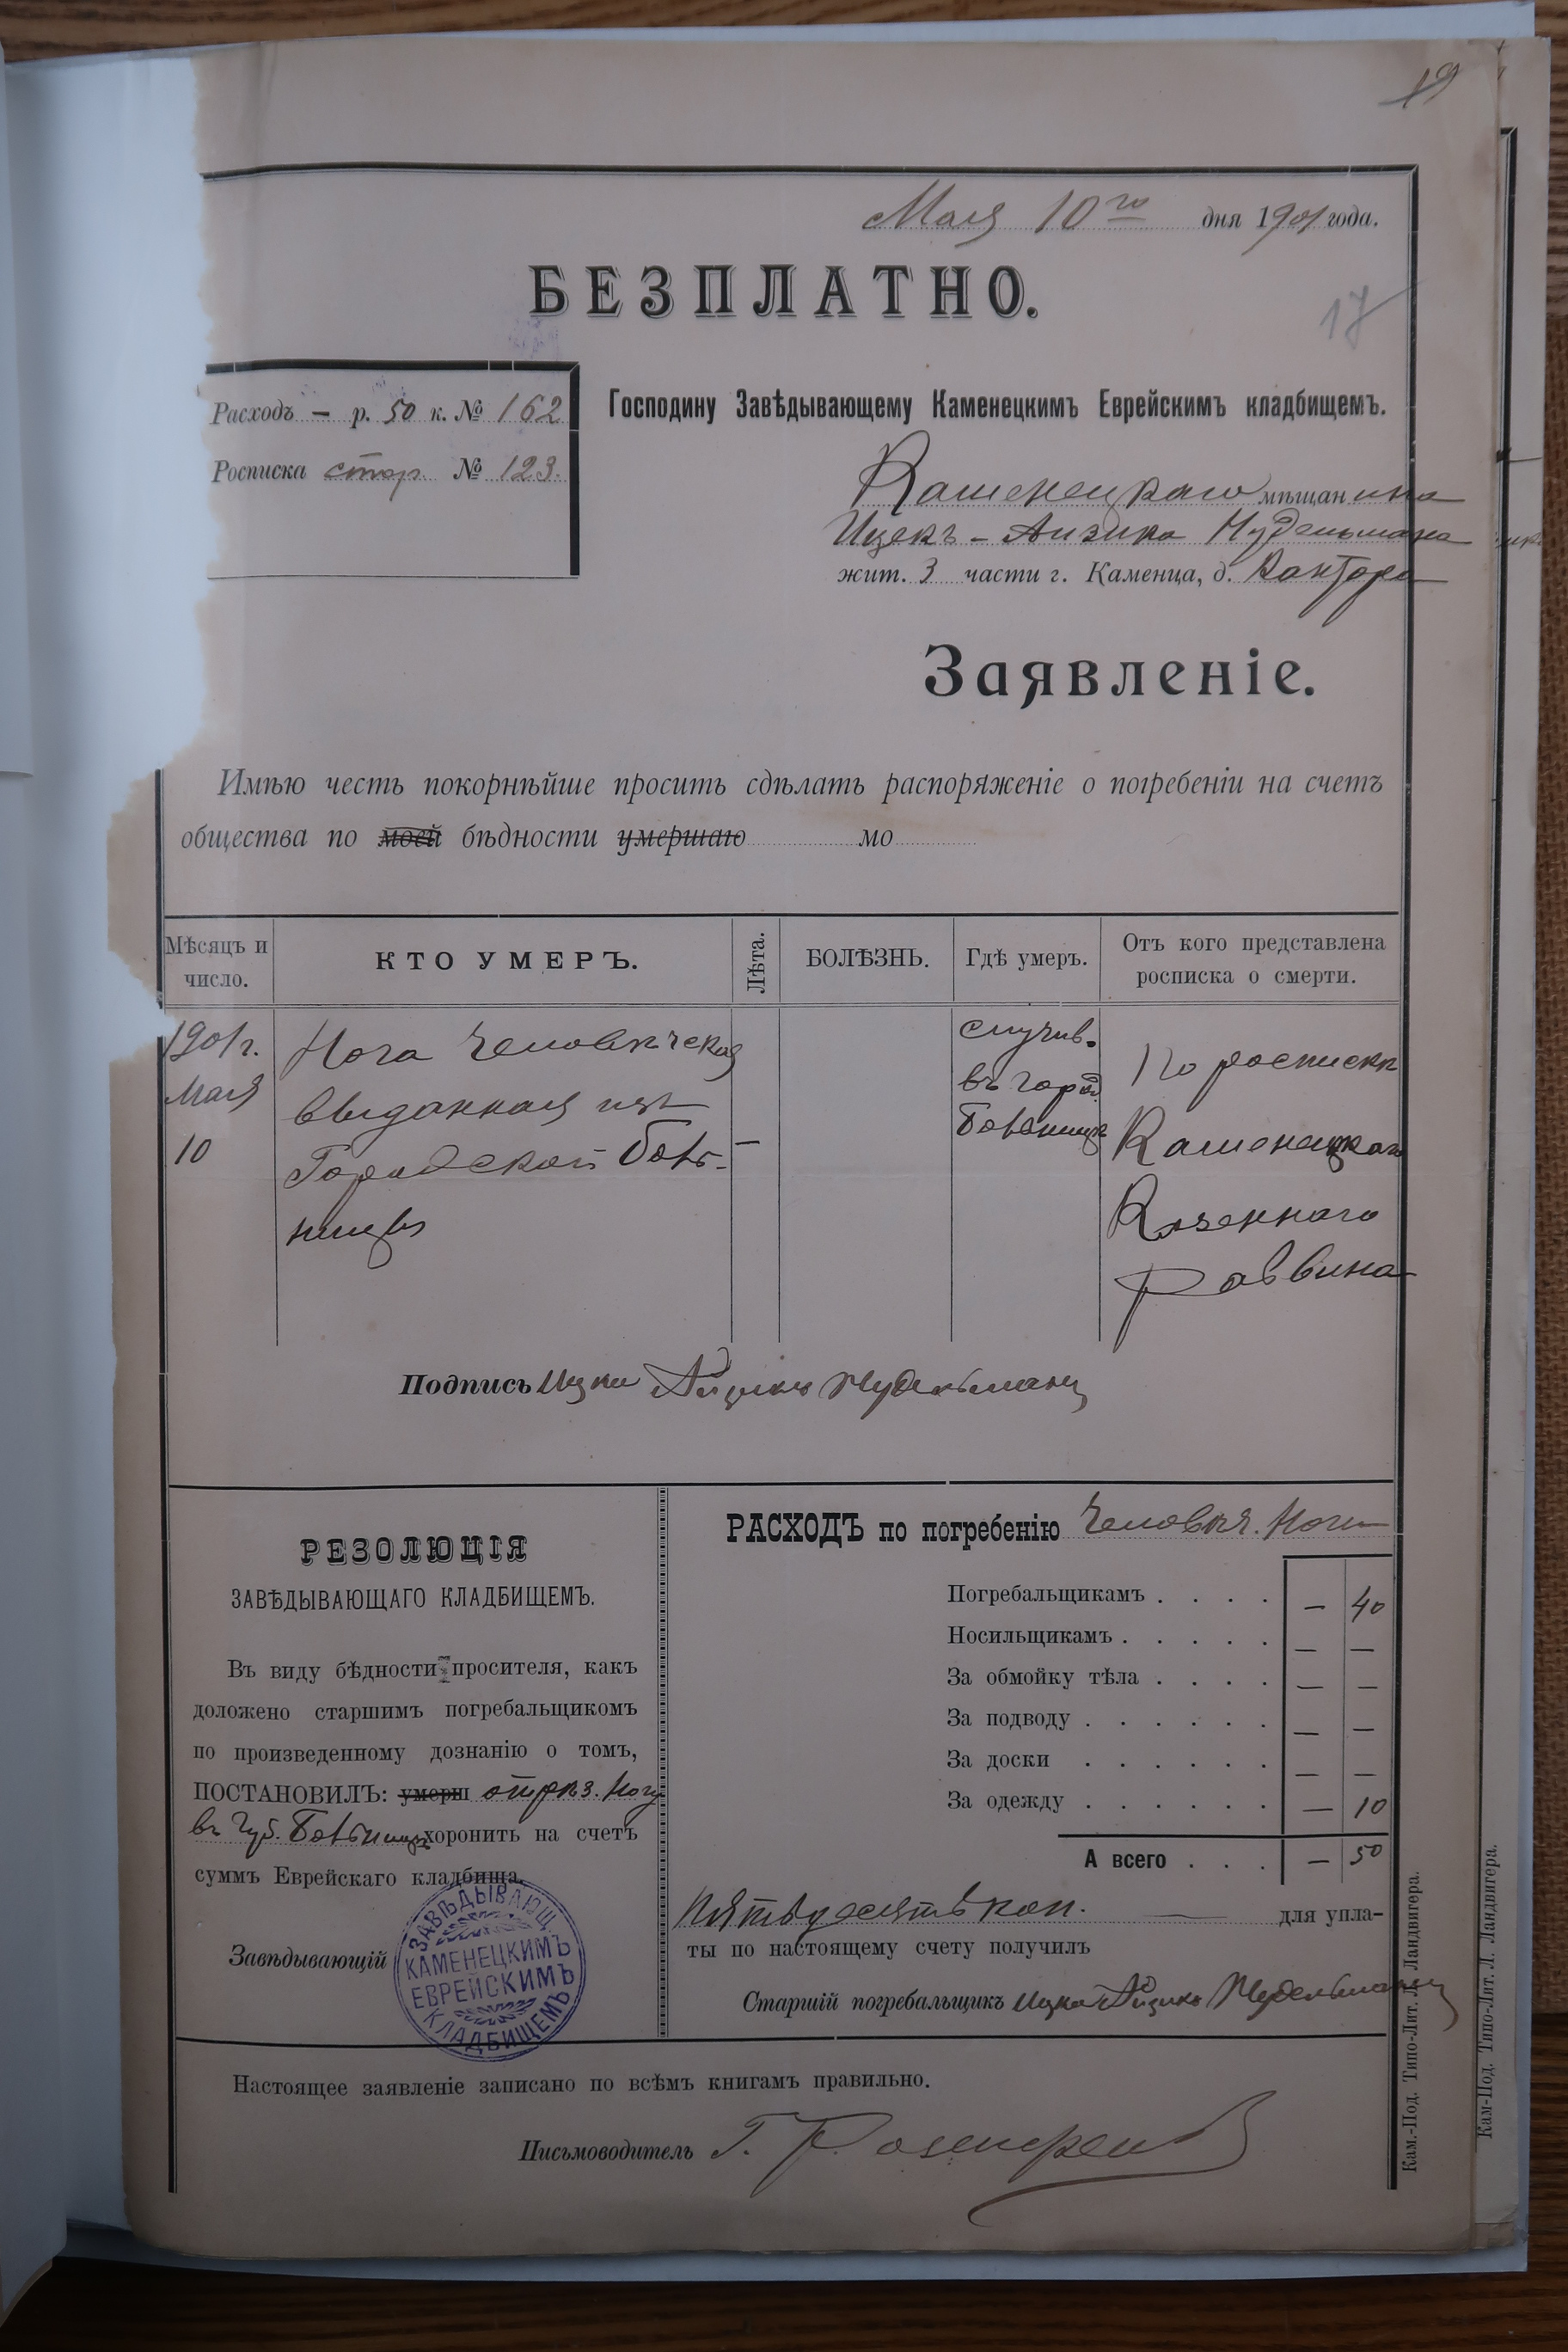 19
Мая 10го дня 1901 года.
БЕЗПЛАТНО.
17
Расходъ — р. 50 к. № 162
Росписка стар. № 123.
Господину Завѣдывающему Каменецкимъ Еврейскимъ кладбищемъ.
Каменецкаго мѣщанина
Ицекъ-Аизика Нудельмана
жит. 3 части г. Каменца, д. Кантора
Заявленіе.
Имѣю честь покорнѣйше просить сдѣлать распоряженіе о погребеніи на счетъ
общества по моей бѣдности умершаго мо
Мѣсяцъ и число.
КТО УМЕРЪ.
Лѣта.
БОЛѢЗНЬ.
Гдѣ умеръ.
Отъ кого представлена росписка о смерти.
1901 г.
Мая
10
Нога человѣческая
выданная изъ
Городской Боль-
ницы
—
случив.
въ город.
Больницѣ
По росписки
Каменецкаго
Казеннаго
Раввина
Подпись Ицко Айзикъ Нудельманъ
РЕЗОЛЮЦІЯ
ЗАВѢДЫВАЮЩАГО КЛАДБИЩЕМЪ.
Въ виду бѣдности просителя, какъ
доложено старшимъ погребальщикомъ
по произведенному дознанію о томъ,
ПОСТАНОВИЛЪ: умерш отрѣз. Ногу
въ Губ. Больницѣ хоронить на счетъ
суммъ Еврейскаго кладбища.
Завѣдывающій
ЗАВѢДЫВАЮЩ.
КАМЕНЕЦКИМЪ
ЕВРЕЙСКИМЪ
КЛАДБИЩЕМЪ
РАСХОДЪ по погребенію Человѣч. Ноги
Погребальщикамъ . . . . — 40
Носильщикамъ . . . . . — —
За обмойку тѣла . . . . — —
За подводу . . . . . . — —
За доски . . . . . . — —
За одежду . . . . . . — 10
А всего . . . — 50
Пятьдесятъ коп. — для упла-
ты по настоящему счету получилъ
Старшій погребальщикъ Ицко Айзикъ Нудельманъ
Настоящее заявленіе записано по всѣмъ книгамъ правильно.
Письмоводитель Г. Розенфельд
Кам.-Под. Типо-Лит. Л. Ландвигера.
Кам-Под. Типо-Лит. Л. Ландвигера.